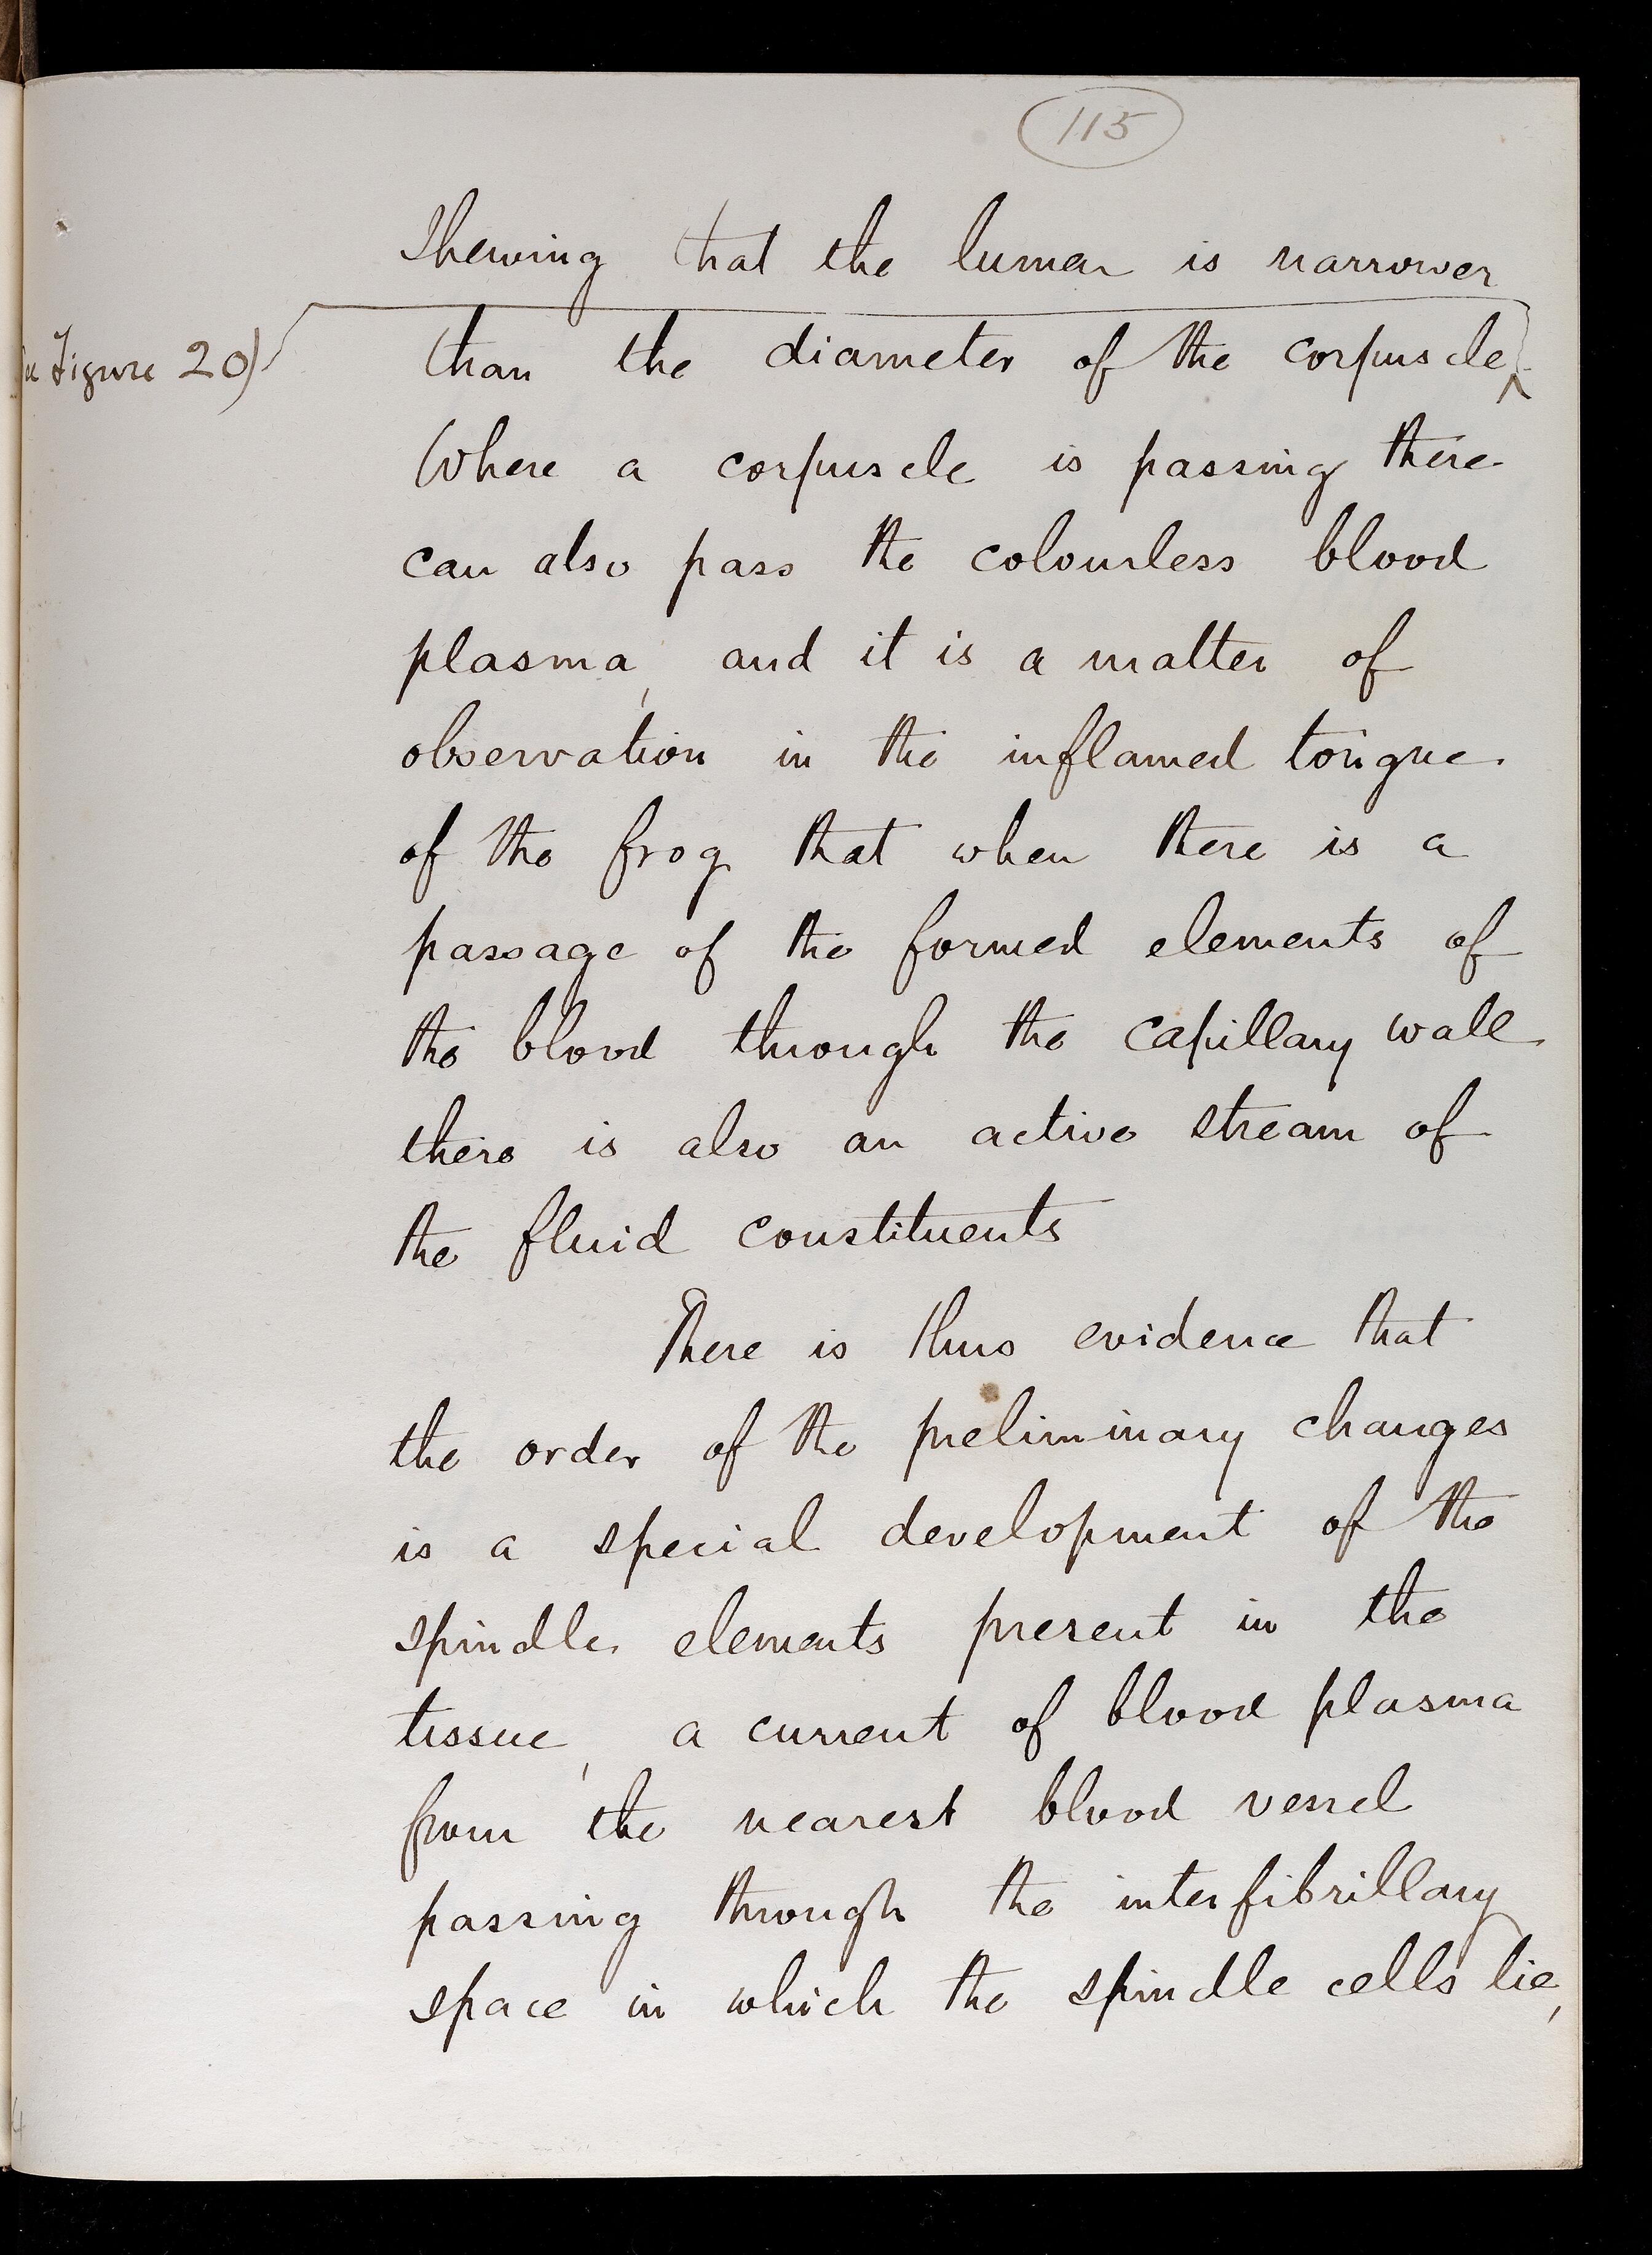 115
Shewing that the lumen is narrower
Figure 20)
than the diameter of the corpuscle.
Where a corpuscle is passing there
can also pass the colourless blood
plasma, and it is a matter of
observation in the inflamed tongue
of the frog that when there is a
passage of the formed elements of
the blood through the capillary wall
there is also an active stream of
the fluid constituents
There is thus evidence that
the order of the preliminary changes
is a special development of the
spindle elements present in the
tissue, a current of blood plasma
from the nearest blood vessel
passing through the interfibrillary
space in which the spindle cells lie,